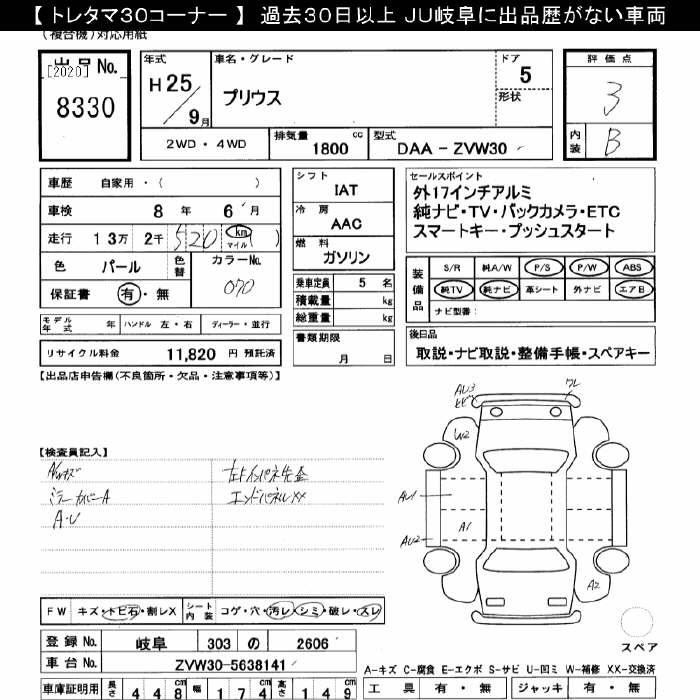 【 トレタマ30コーナー 】 過去30日以上 JU岐阜に出品歴がない車両
(複合機)対応用紙
出品No.
[2020]
8330
年式
H25/9月
車名・グレード
プリウス
ドア
5
形状
評価点
3
内装
B
2WD・4WD
排気量 cc
1800
型式
DAA - ZVW30
車歴 自家用・( )
車検 8年 6月
走行 13万 2千 520 km マイル ( )
色 パール 色替 カラーNo. 070
保証書 有・無
モデル年式 年 ハンドル 左・右 ディーラー・並行
リサイクル料金 11,820 円 預託済
シフト
IAT
冷房
AAC
燃料
ガソリン
乗車定員 5 名
積載量 kg
総重量 kg
書類期限
月 日
セールスポイント
外17インチアルミ
純ナビ・TV・バックカメラ・ETC
スマートキー・プッシュスタート
装備品
S/R 純A/W P/S P/W ABS
純TV 純ナビ 革シート 外ナビ エアB
ナビ型番:
後日品
取説・ナビ取説・整備手帳・スペアキー
【出品店申告欄(不良箇所・欠品・注意事項等)】
【検査員記入】
A/Wキズ
ミラーカバーA
A・U
エンドパネルXX
AU3
ヒビ
ワレ
W2
AU1
AU2
A1
A2
スペア
FW キズ・トビ石・割レX
シート内装 コゲ・穴・汚レ・シミ・破レ・スレ
登録No. 岐阜 303 の 2606
車台No. ZVW30-5638141
車庫証明用 長さ 448cm 幅 174cm 高さ 149cm
A-キズ C-腐食 E-エクボ S-サビ U-凹ミ W-補修 XX-交換済
工具 有・無 ジャッキ 有・無